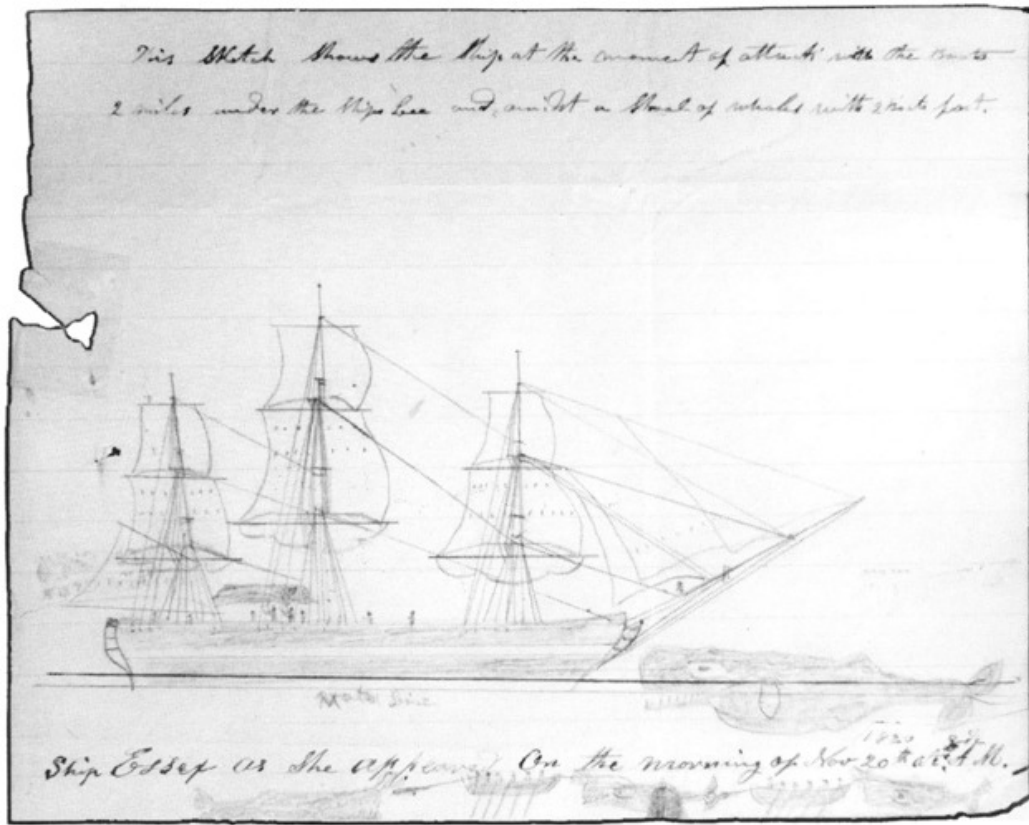 This Sketch Shows the Ship at the moment of attack with the Boats
2 miles under the Ships Lee and, amidst a Shoal of whales with 2 boats fast.
Water Line
1820
Ship Essex as She appeared On the morning of Nov 20th at A.M.